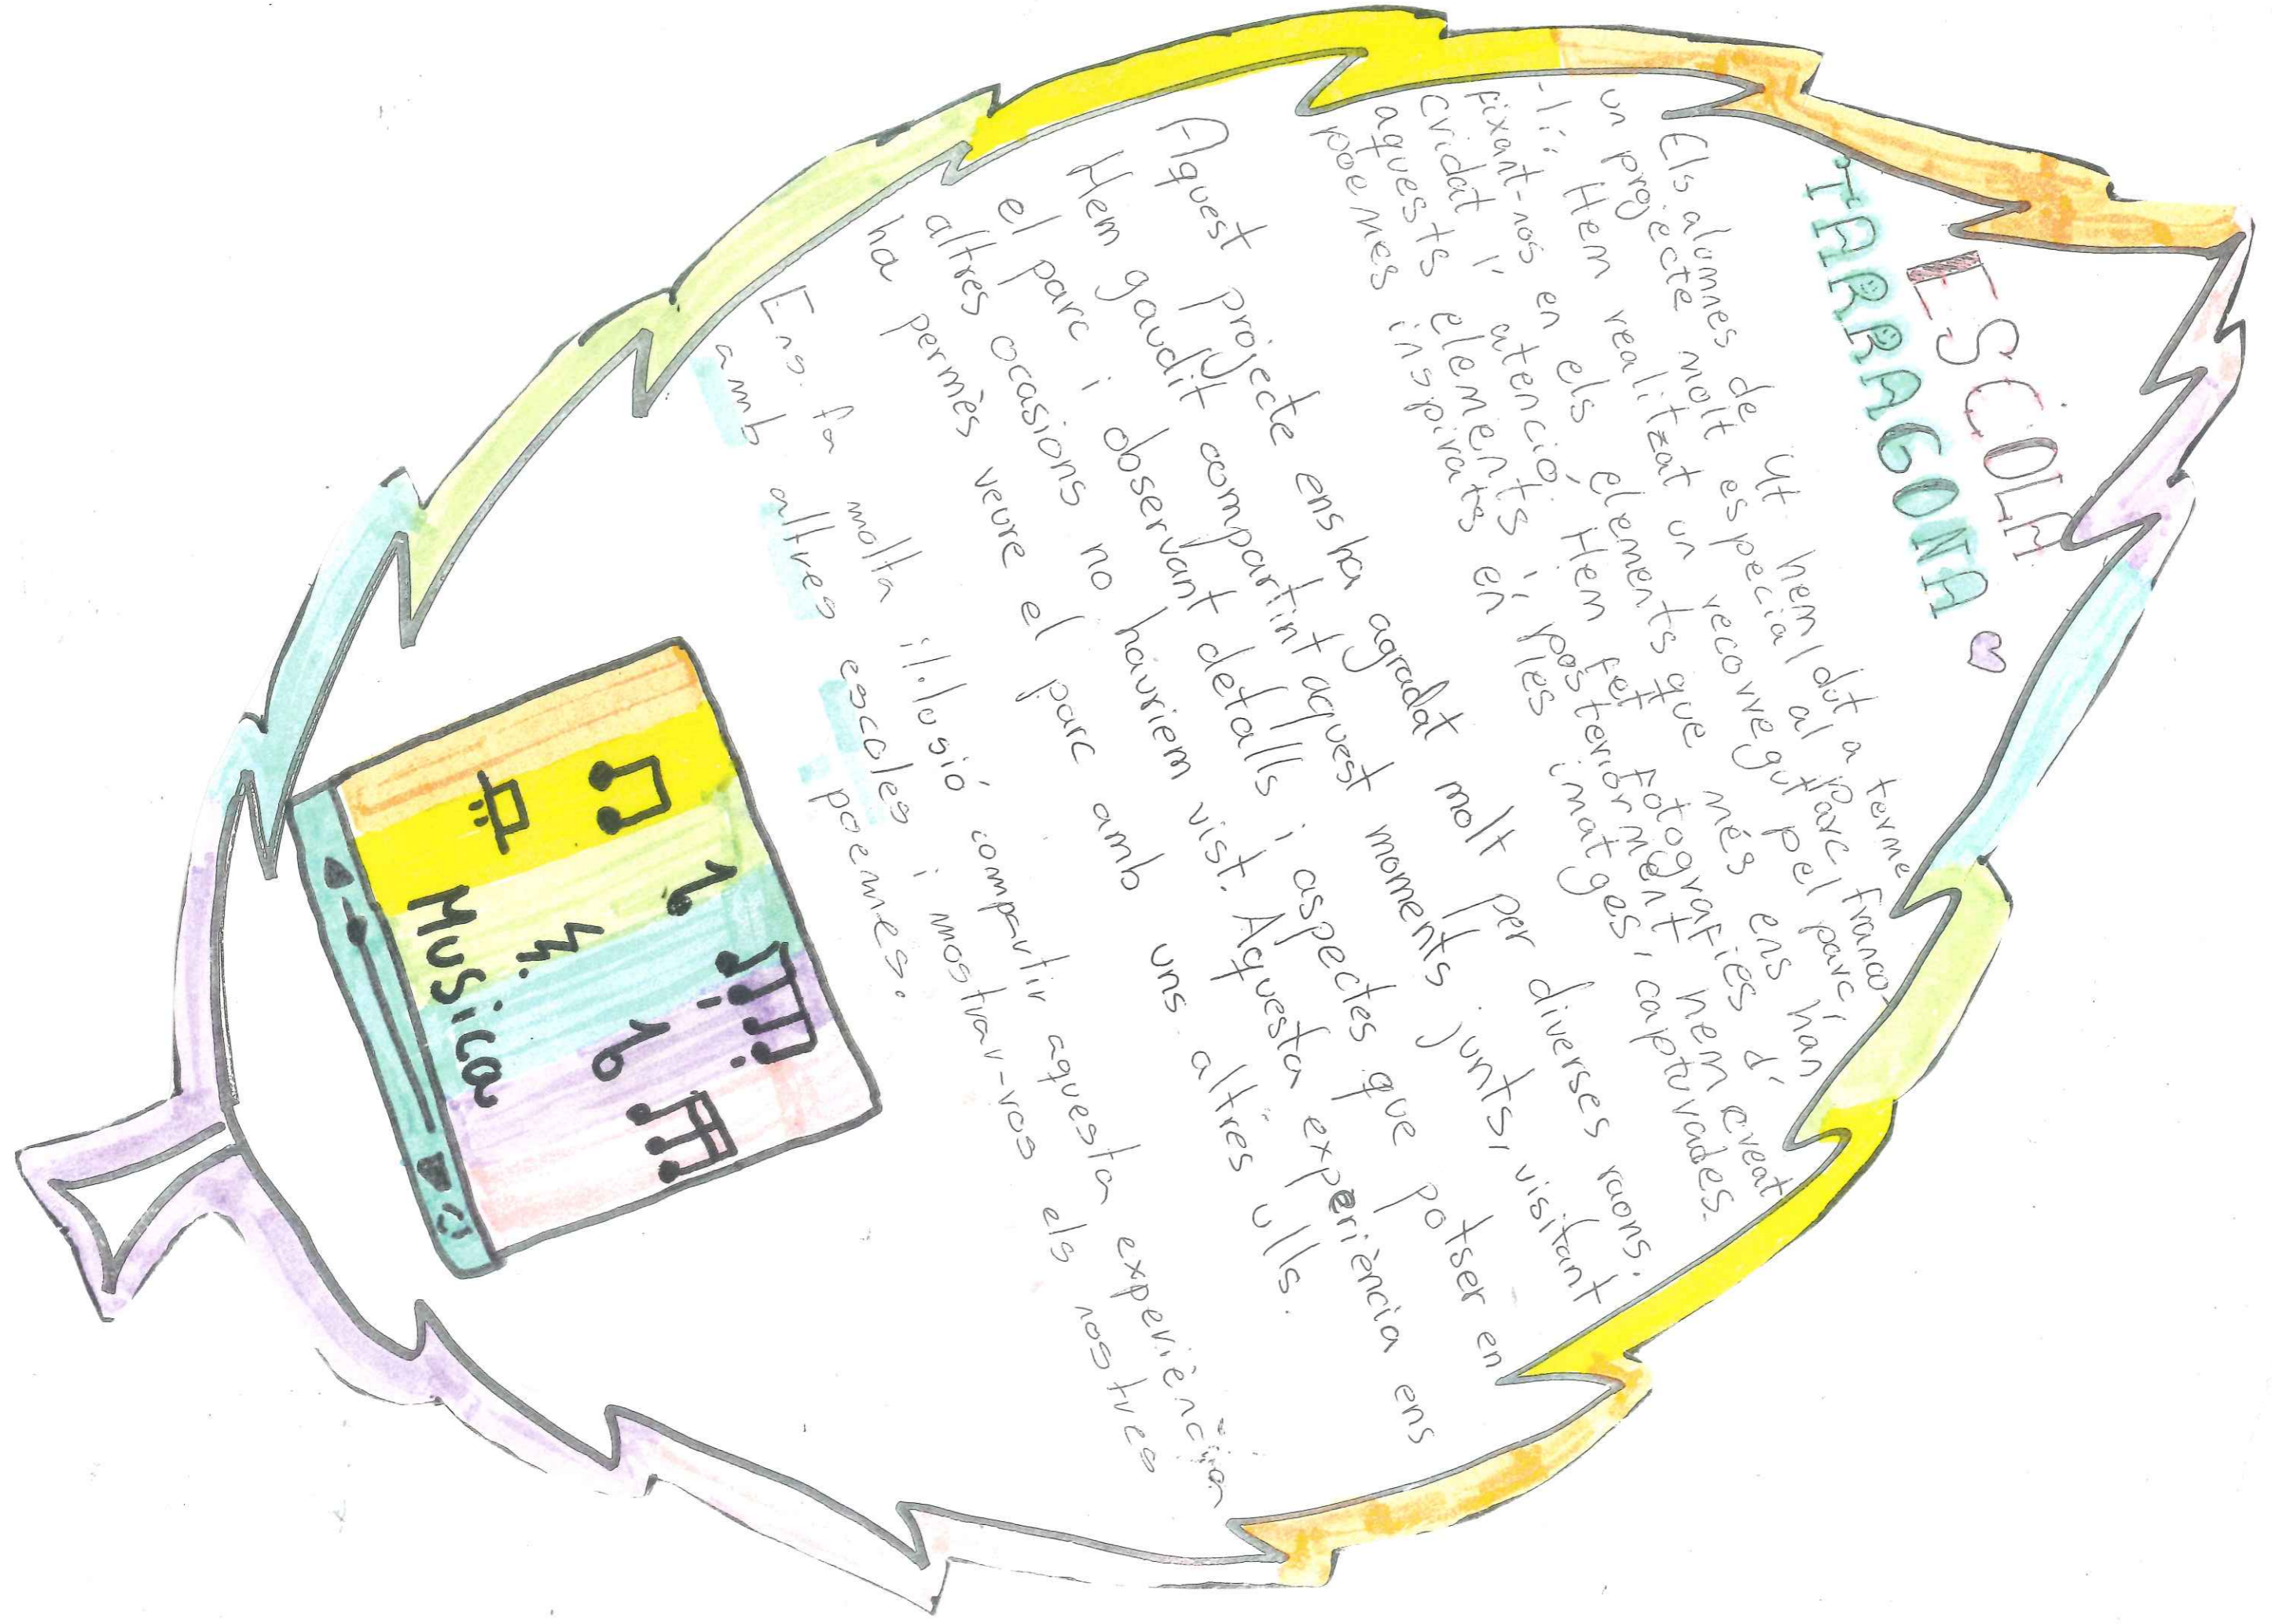 ESCOLA
TARRAGONA
Els alumnes de 4t hem dut a terme
un projecte molt especial al parc Franco-
-lí: Hem realitzat un recorregut pel parc,
fixant-nos en els elements que més ens han
cridat l'atenció. Hem fet fotografies d'
aquests elements i posteriorment hem creat
poemes inspirats en les imatges, capturades.
Aquest projecte ens ha agradat molt per diverses raons.
Hem gaudit compartint aquest moments junts, visitant
el parc i observant detalls i aspectes que potser en
altres ocasions no hauriem vist. Aquesta experiència ens
ha permès veure el parc amb uns altres ulls.
Ens fa molta il·lusió compartir aquesta experiència
amb altres escoles i mostrar-vos els nostres
poemes.
Musica